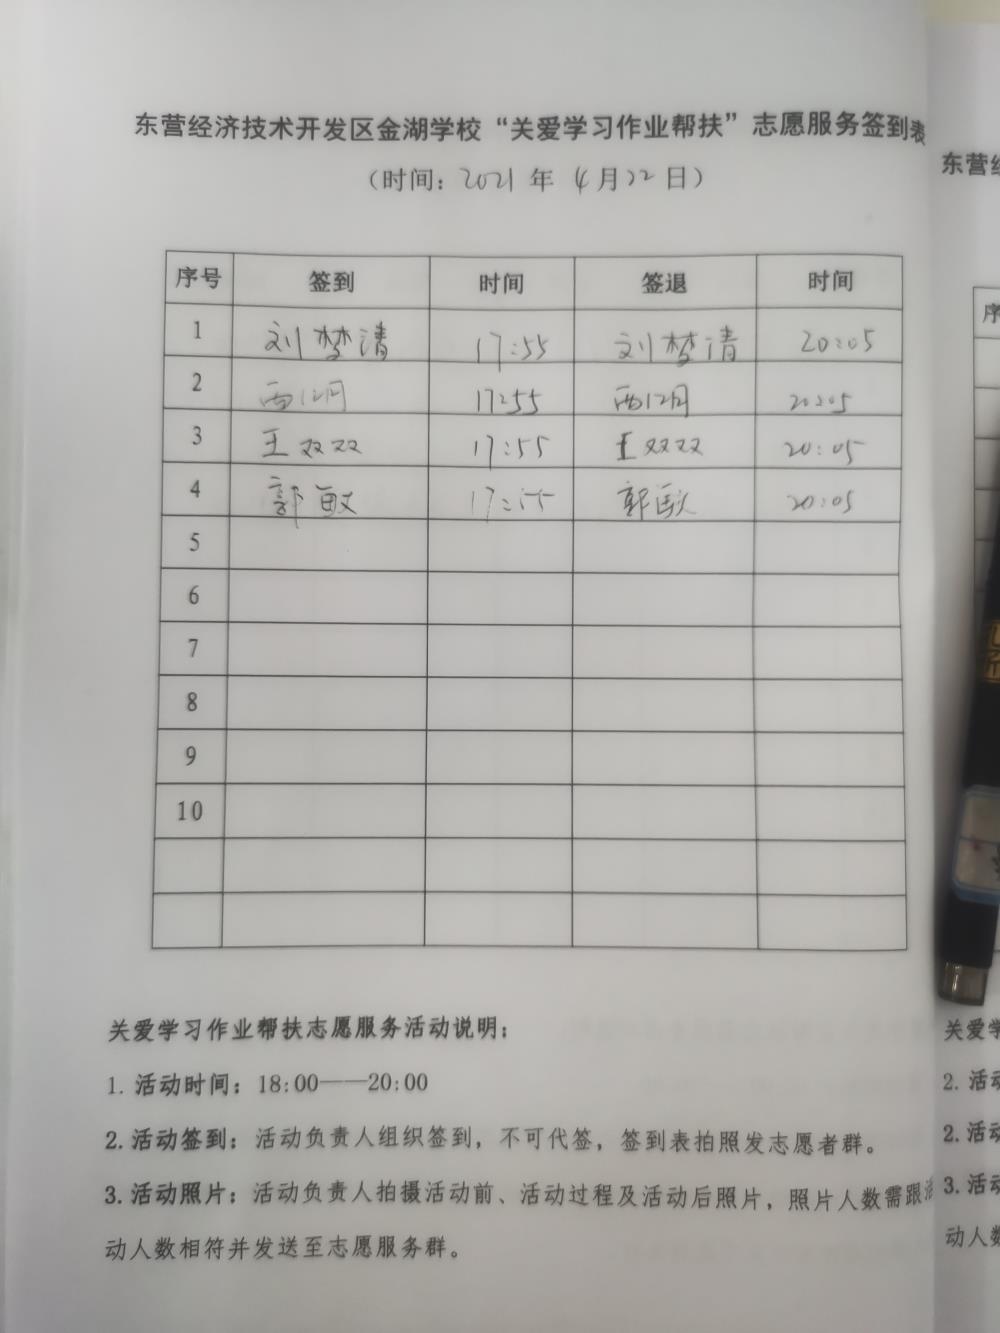 东营经济技术开发区金湖学校“关爱学习作业帮扶”志愿服务签到表
（时间：2021 年 4月22日）
序号 签到 时间 签退 时间
1 刘梦清 17:55 刘梦清 20:05
2 17:55 20:05
3 王双双 17:55 王双双 20:05
4 郭敏 17:55 郭敏 20:05
5
6
7
8
9
10
关爱学习作业帮扶志愿服务活动说明：
1. 活动时间：18:00——20:00
2. 活动签到：活动负责人组织签到，不可代签，签到表拍照发志愿者群。
3. 活动照片：活动负责人拍摄活动前、活动过程及活动后照片，照片人数需跟活
动人数相符并发送至志愿服务群。
东营经
序
关爱学
2. 活动
2. 活动
3. 活动
动人数